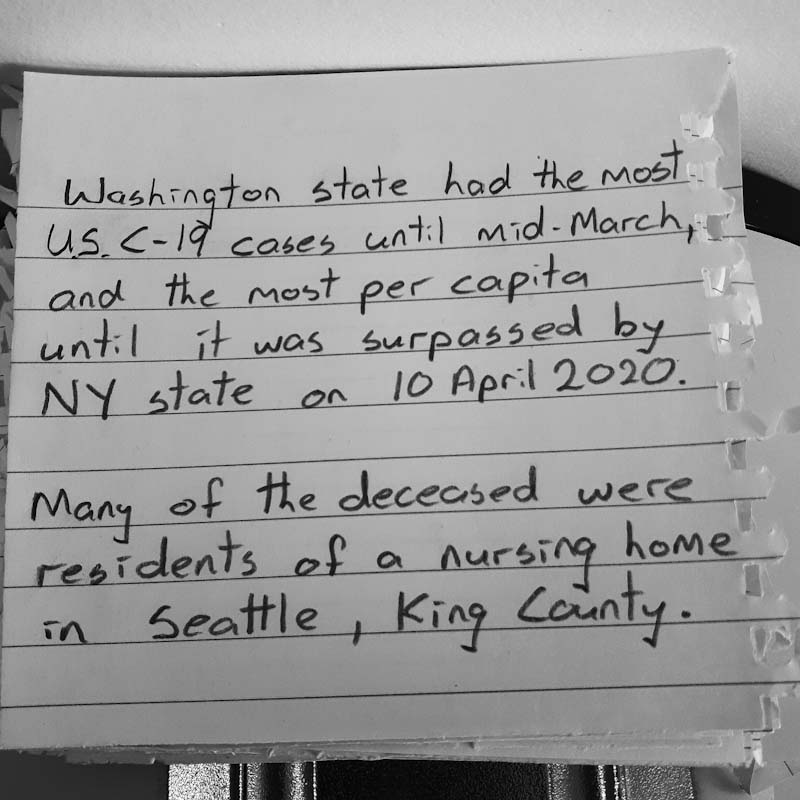 Washington state had the most
U.S. C-19 cases until mid-March,
and the most per capita
until it was surpassed by
NY state on 10 April 2020.
Many of the deceased were
residents of a nursing home
in Seattle, King County.